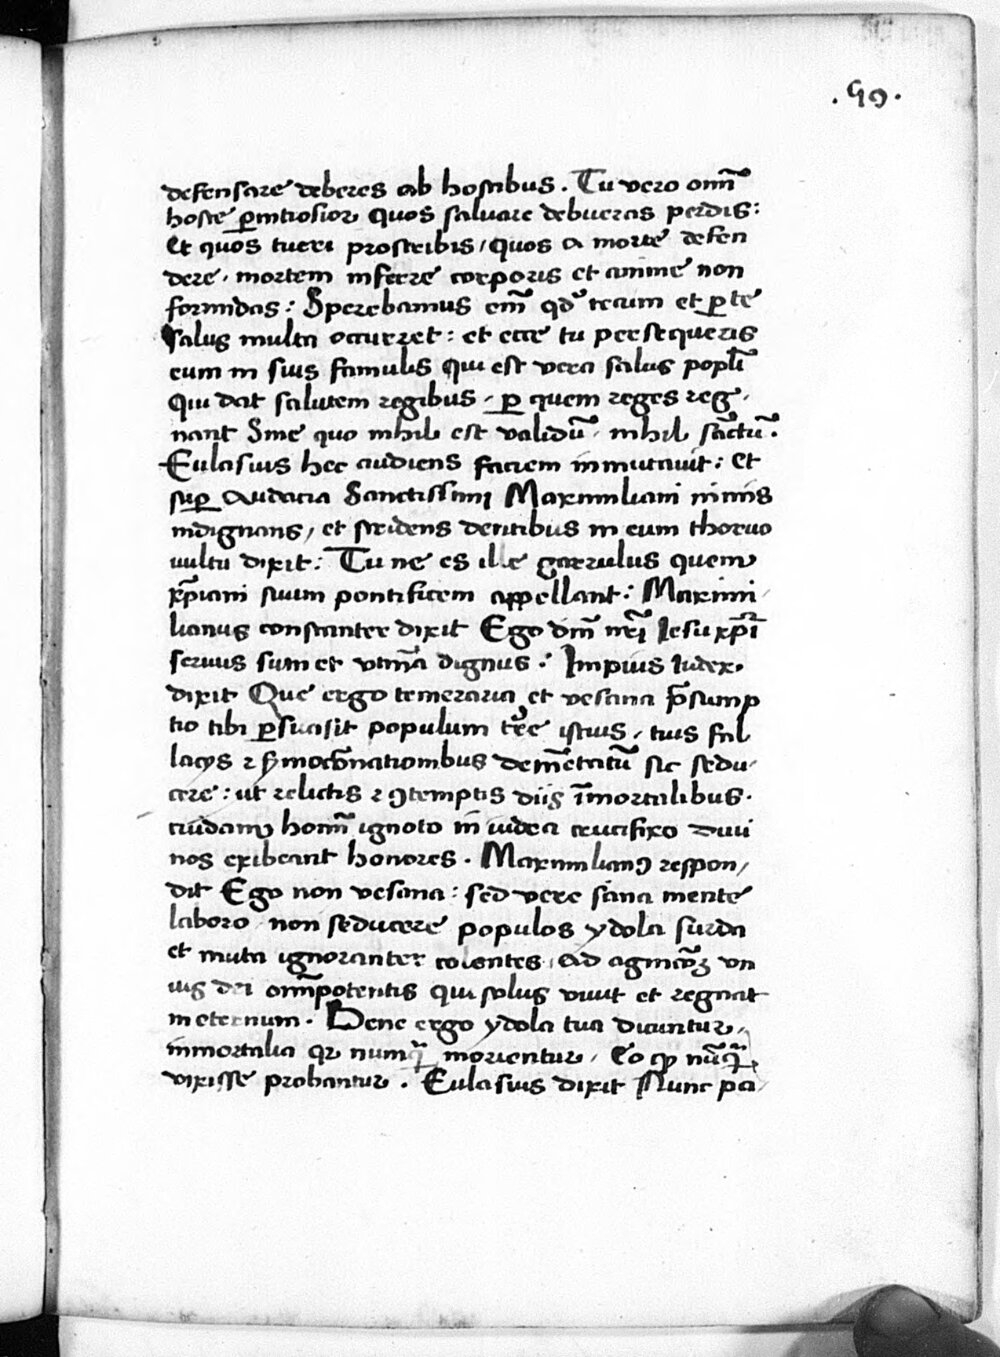 .59.
defensare deberes ab hostibus. Tu vero om̄i
hoste ꝑnitiosior quos saluare debueras perdis:
Et quos tueri prostribis/ quos a morte defen
dere, mortem inferre corporis et anime non
formidas: Sperebamus em̄ qd̛ tecum et ꝑ te
Salus multa occurret: et ecce tu persequeris
eum in suis famulis qui est vera salus popl̄i
Qui dat salutem regibus, ꝑ quem reges reg,
nant Sine quo nihil est validū, nihil sāctū.
Eulasius hec audiens faciem inmutauit: et
suꝑ Audacia Sanctissimi Maximiliani nimis
indignans, et stridens dentibus in eum thoruo
uultu dixit: Tu ne es ille garrulus quem
xp̄iani suum pontificem appellant: Maximi,
lianus constanter dixit Ego dn̄i nr̄i Jesu xp̄i
seruus sum et vtinā dignus: Impius Iudex,
dixit Que ergo temeraria et vesana p̄sump
tio tibi ꝑsuasit populum tr̄e istius, tuis fal
lacijs ⁊ ꝯmētatū sic sedu,
cere: ut relictis ⁊ ꝯtemptis diis īmortalibus.
cuidam hom̄i ignoto in iudea crucifixo diui
nos exibeant honores. Maximilianꝯ respon,
dit Ego non vesana: sed vere sana mente
laboro, non seducere populos ydola surda
et muta ignoranter colentes, Ad agnicōꝫ vn
ius dei om̄ipotentis qui solus viuit et regnat
in eternum. Bene ergo ydola tua dicuntur,
inmortalia qꝛ numq̄ morientur, Eo ꝙ nūq̄,
vixisse probantur. Eulasius dixit Nunc pa,